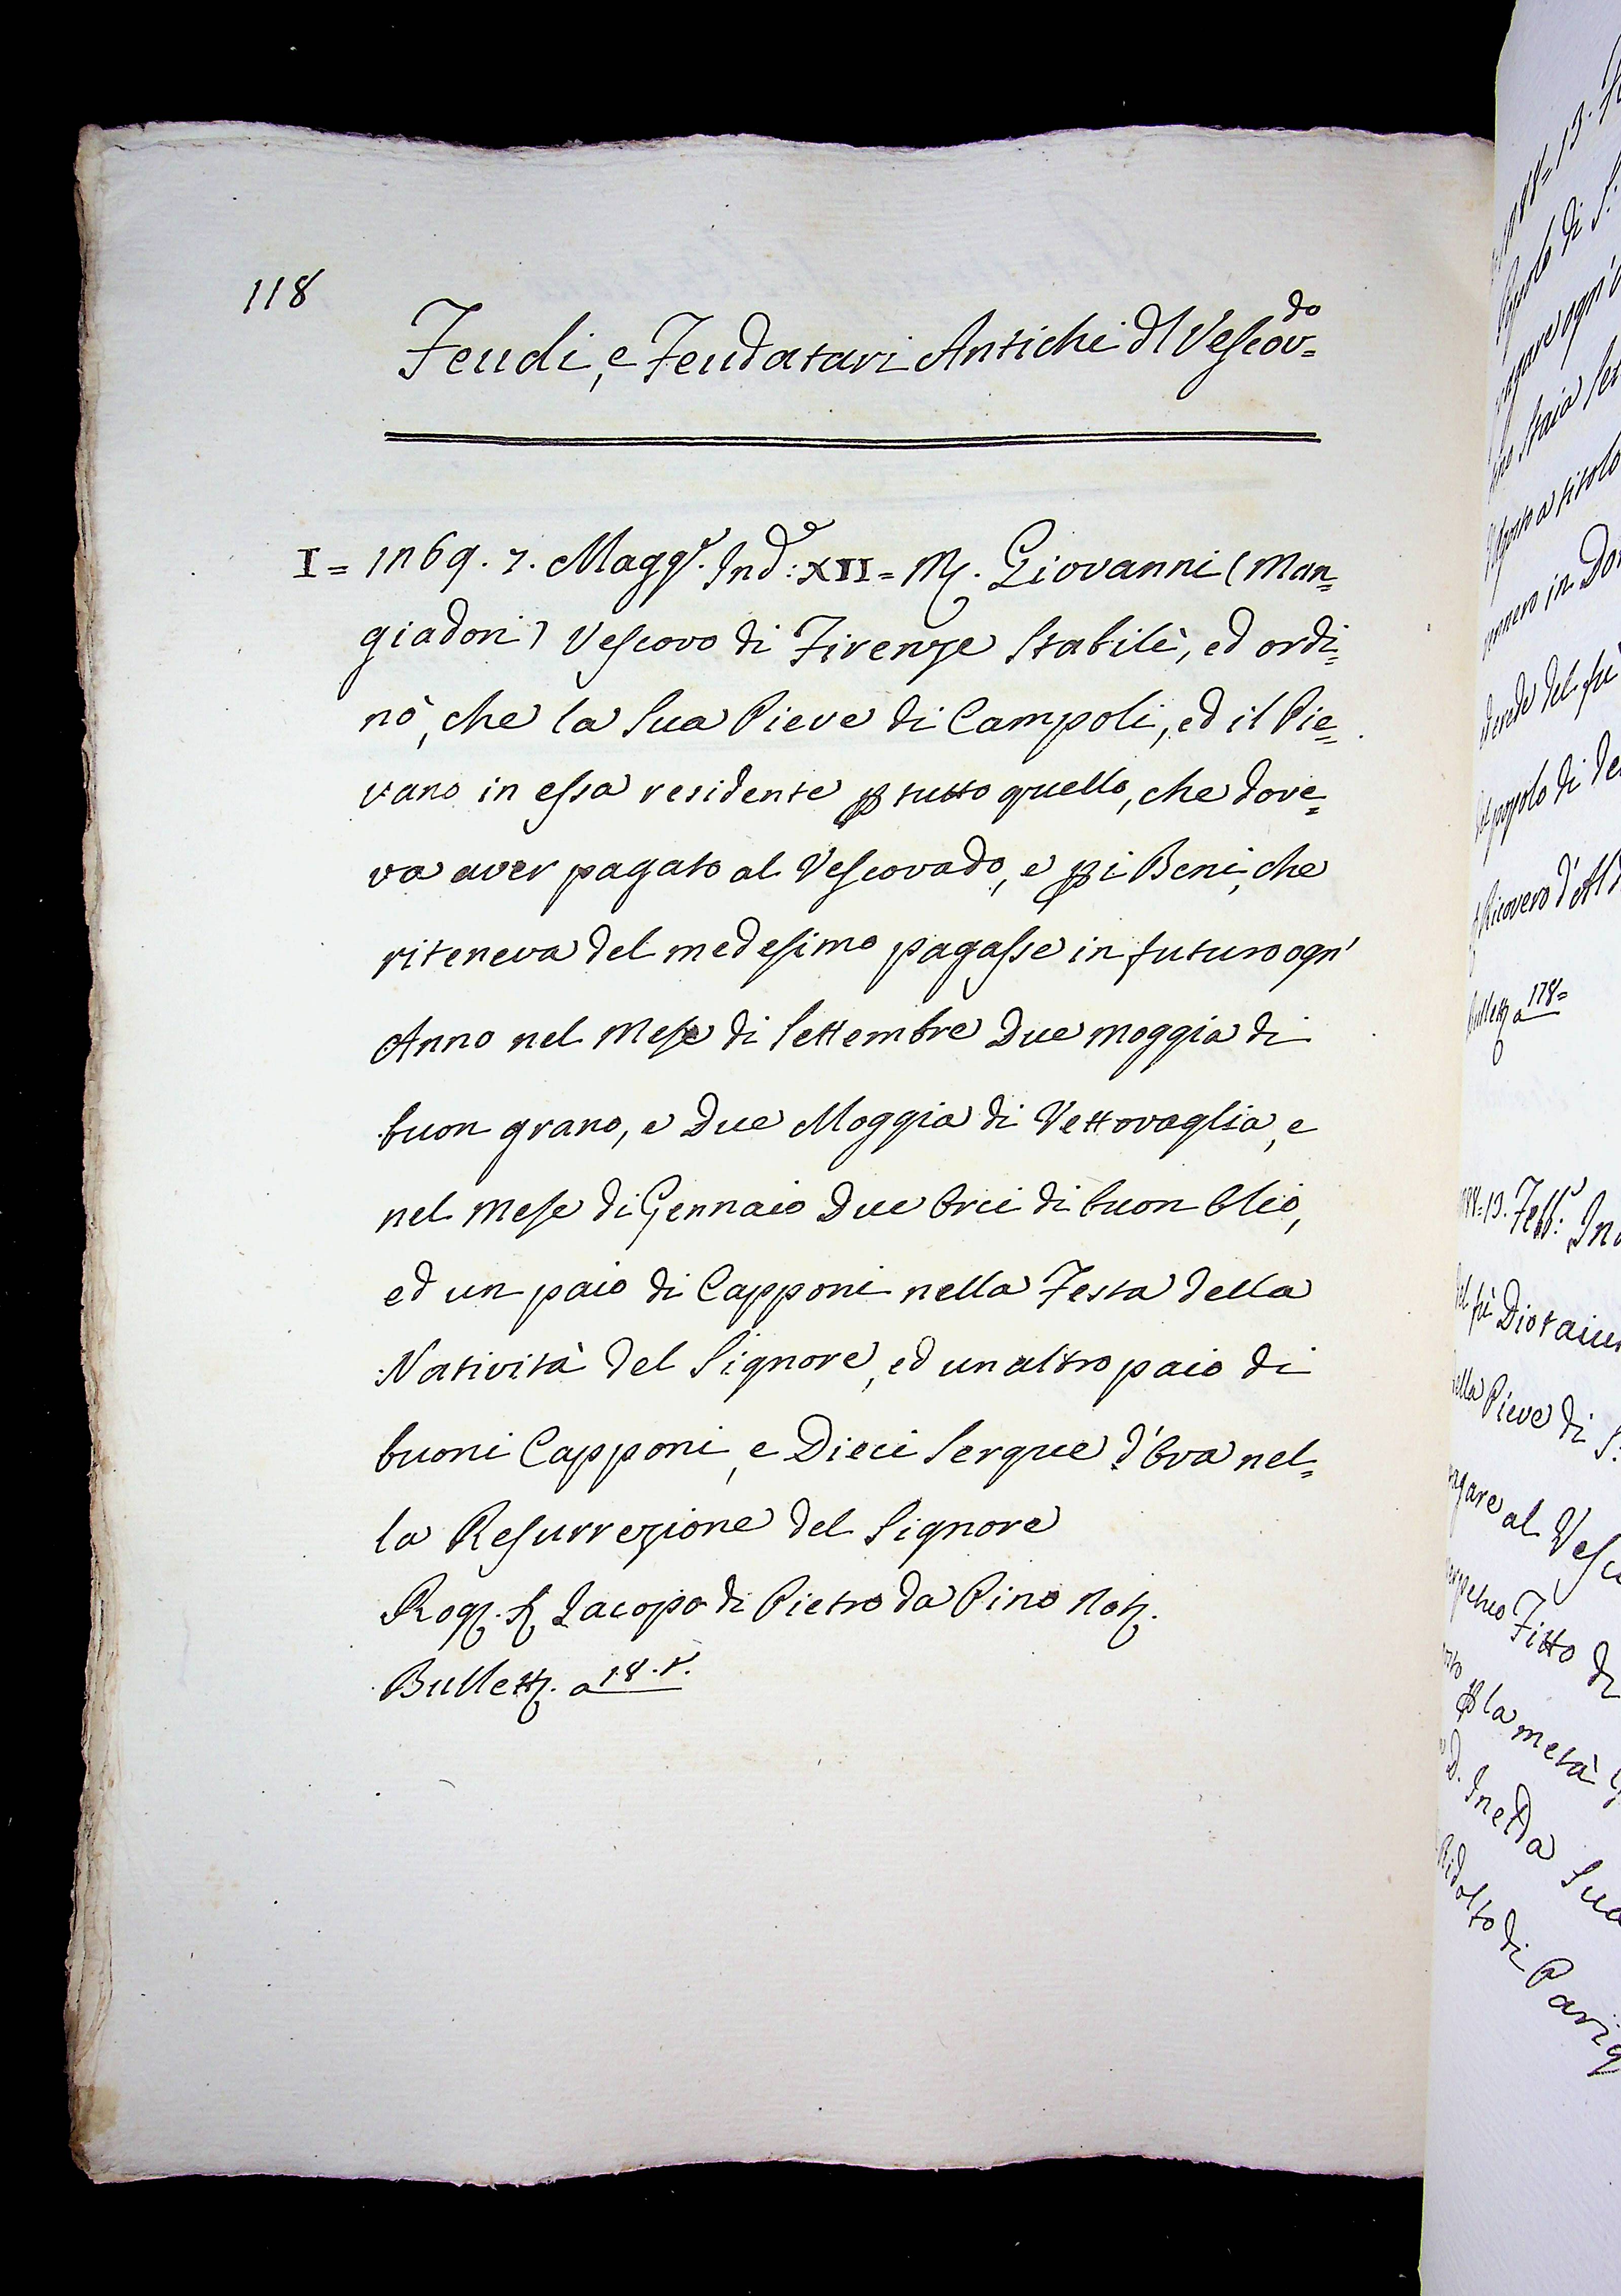 118
Feudi, e Feudatari Antichi dl Vescov=do
I = 1269. 7. Magg.e Ind.e: XII = M. Giovanni (Man=
giadori) Vescovo di Firenze Stabilì, ed ordi=
nò, che la Sua Pieve di Campoli, ed il Pie=
vano in essa residente ꝑ tutto quello, che dove=
va aver pagato al Vescovado, e ꝑ i Beni, che
riteneva del medesimo pagasse in futuro ogn'
Anno nel Mese di Settembre Due Moggia di
buon grano, e Due Moggia di Vettovaglia, e
nel Mese di Gennaio Due Orci di buon Olio,
ed un paio di Capponi nella Festa della
Natività del Signore, ed un altro paio di
buoni Capponi, e Dieci Serque d'Ova nel=
la Resurrezione del Signore
Rog. S. Iacopo di Pietro da Pino Not.
Bullett. a 18. r.
178=
13. Febb:
del fù
Pieve di S.
al
Fitto di
ꝑ la metà
D. Sua
di